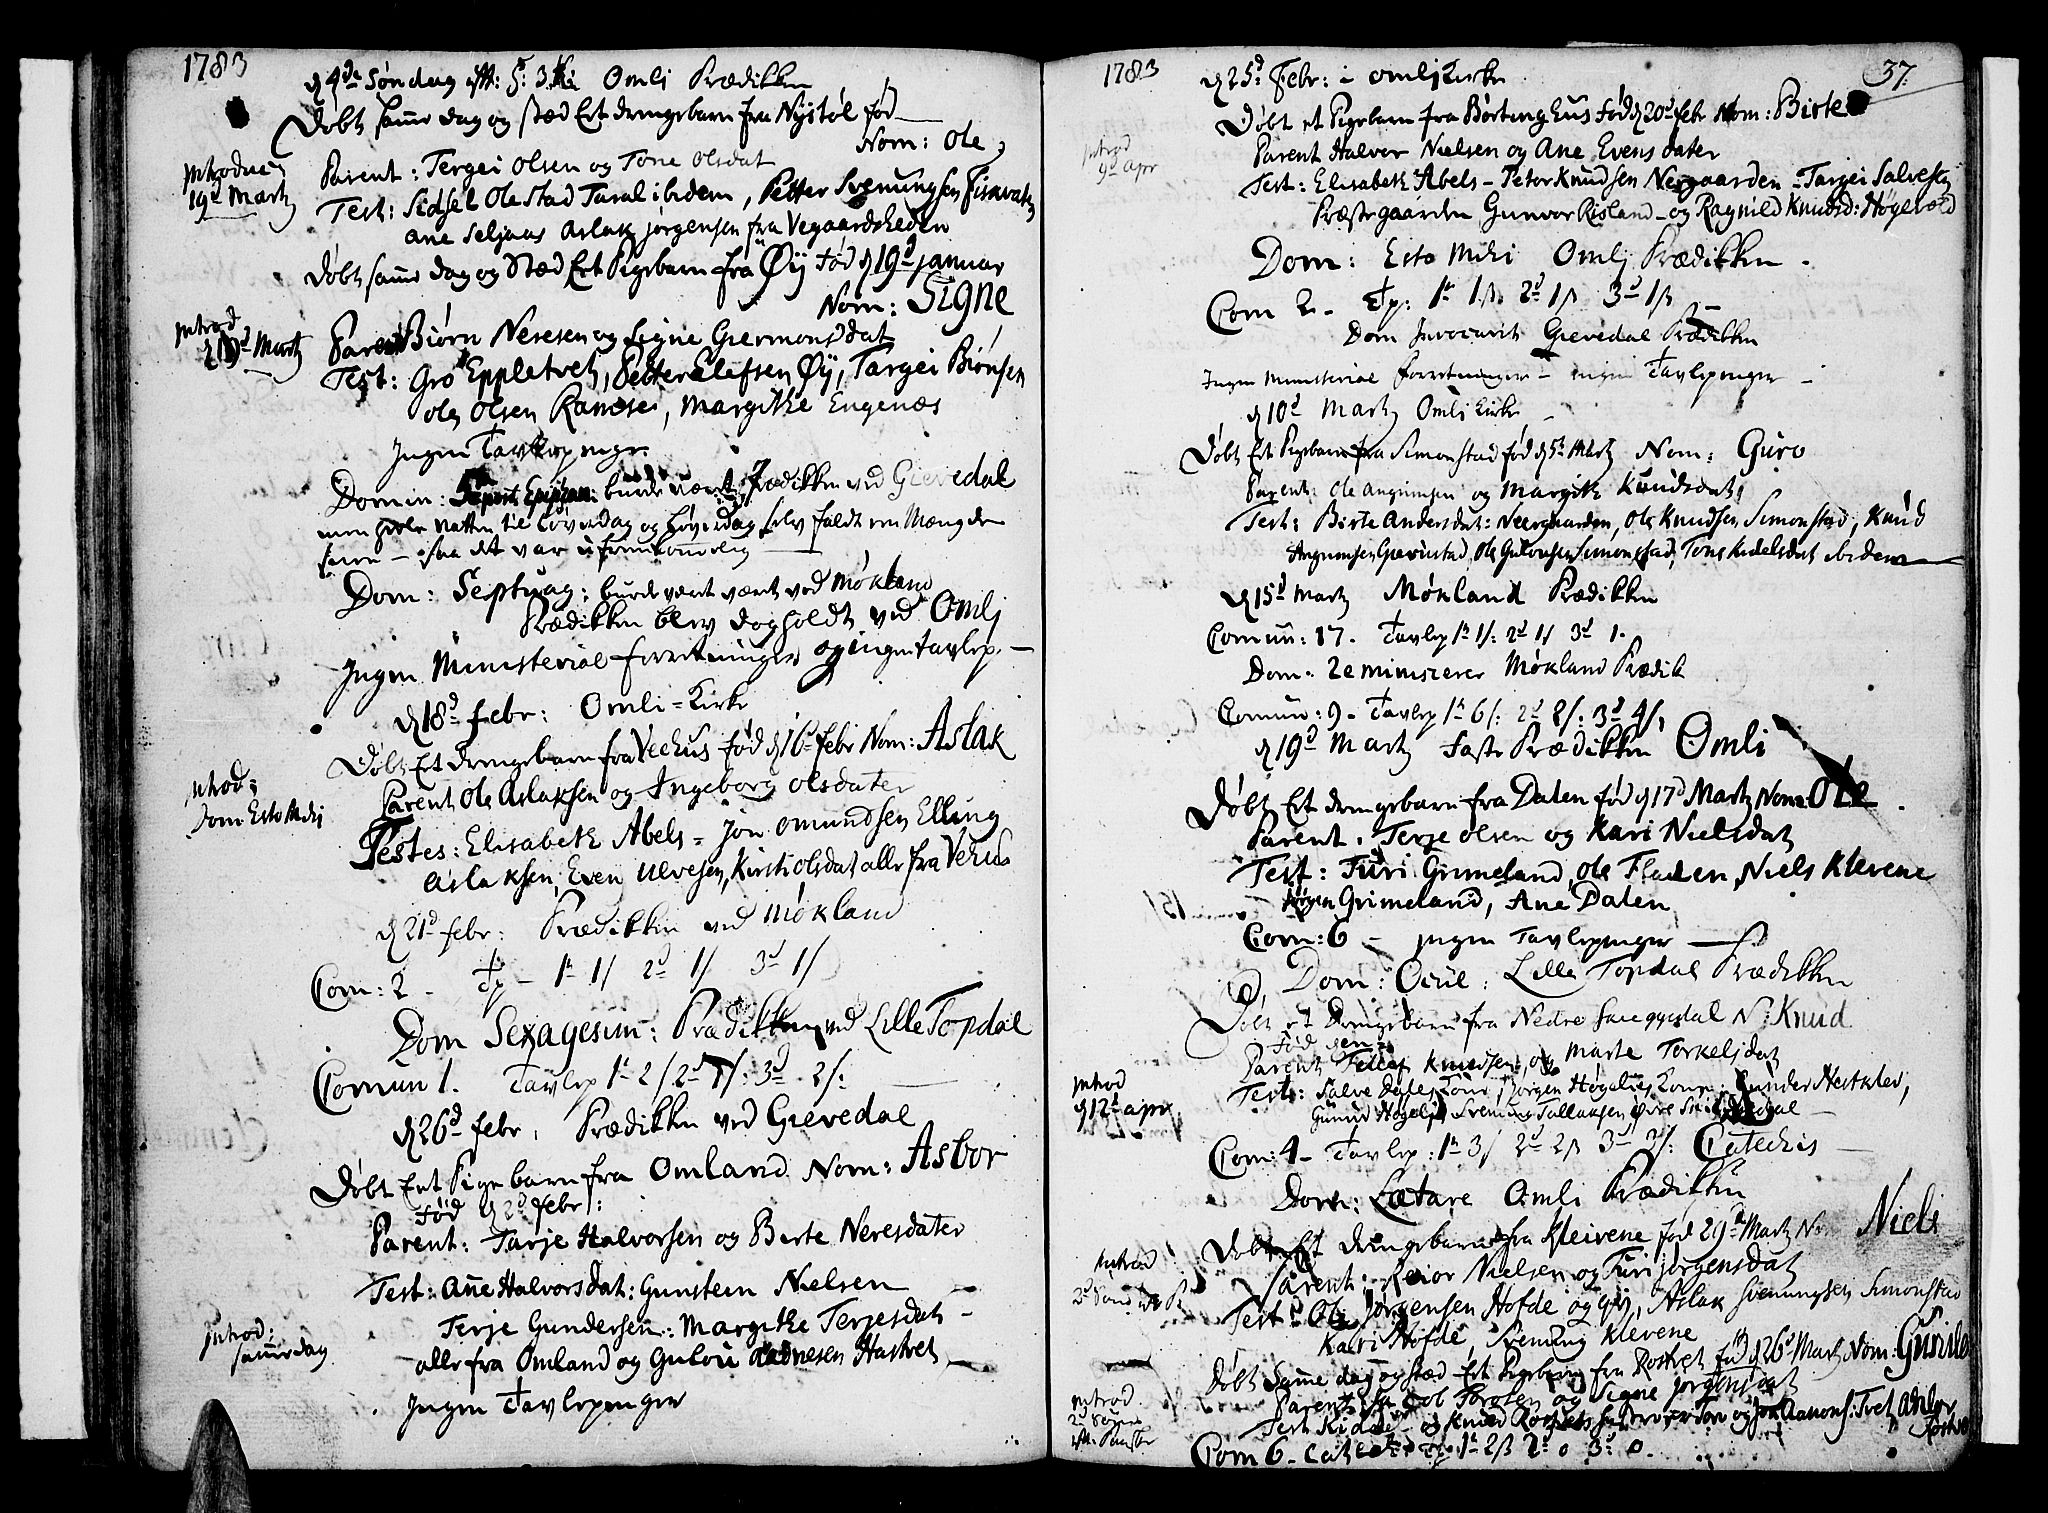 1783
d 4de Søndag eft: H: 3 K: Omli Prædikken
Døbt samme dag og stæd Et drengebarn fra Nystøl fød
Nom: Ole;
Introduc:
19d Martz
Parent: Tergei Olsen og Tone Olsdat
Test: Sidsel Olestad Taral ibidem, Petter Svenungsen Fisævatn
Ane Seljaas Aslak Jørgensen fra Vegaardsheden
Døbt samme dag og Stæd Et Pigebarn fra Øy fød d 19d januar
Nom: Signe
Introd
Martz
Parent Biørn Neresen og Signe Giermonsdat
Test: Gro Eppletvet, Petter Elefsen Øy, Targei Biønsen
ole Olsen Ramse, Margithe Engenæs
Ingen Tavlepenger
Domin: 5ta post Epiphan: burde været Prædikken ved Gievedal
men hele natten til Løverdag og Løverdag selv faldt en Mængde
sneen - saa det var ufremkommelig
Dom: Septuag: burde været været ved Møkland
Prædikken blev dog holdt ved Omlj
Ingen Ministerial forretninger og ingen tavlep.
d 18d febr: Omli-Kirke
Døbt Et drengebarn fra Vechus fød d 16d febr Nom: Aslak
Introd:
Dom: Esto Mihi
Parent Ole Aslaksen og Ingeborg Olsdater
Testes: Elisabeth Abels - Jon Omundsen Elling
Aslaksen, Even Ulvesen, Kirsti Olsdat alle fra Vehus
d 21d febr: Prædikken ved Møkland
Com: 2 - Tp - 1te 1/ 2d 1/ 3d 1/
Dom Sexagesim: Prædikken ved Lille Topdal
Comun 1. Tavlep 1te 2/ 2d 1/: 3d 2/:
d 26d febr, Prædikken ved Gievedal
Døbt Et Pigebarn fra Omland Nom: Asbor
Fød d 2d febr:
Parent: Tarje Halvorsen og Berte Neresdater
Test: Ane Halvorsdat: Gunstein Nielsen
Introd:
samme dag
Terje Gundersen: Margithe Terjesdat -
alle fra Omland og Gulou Aadnesen Hastvet
Ingen Tavlepenger
1783
37.
d 25d Febr: i Omli Kirke
Døbt et Pigebarn fra Børtinghus fød d 20d febr Nom: Birte
Introd
9d Apr
Parent Halvor Nielsen og Ane Evensdater
Test: Elisabeth Abels - Petor Knudsen Nergaarden - Targei Salvesen
Præstegaarden Gunvor Risland - og Ragnild Knudsd: Høgevold
Dom: Esto Mihi Omlj Prædikken.
Com 2 - Tp: 1te 1ß 2d 1ß 3d 1ß
Dom Invocavit Gievedal Prædikken
Ingen Ministerial forretninger - ingen Tavlepenger -
d 10d Martz Omli Kirke
Døbt Et Pigebarn fra Simonstad fød d 5te Martz Nom: Guro
Parent: Ole Angrimsen og Margith Knudsdat,
Test: Birte Andersdat: Neergaarden, Ole Knudsen Simonstad, Knud
Angrimsen Gievinstad, Ole Gulovsen Simonstad, Tone Kedelsdat ibidem
d 15d Martz Møkland Prædikken
Comun: 17. Tavlep 1te 1/: 2d 1/ 3d 1.
Dom: Reminiscere Møkland Prædik
Comun: 9 - Tavlep 1te 6/: 2d 8/: 3d 4/,
d 19d Martz Faste Prædikken Omli
Døbt Et drengebarn fra Dalen fød d 17d Martz Nom: Ole
Parent. Terje Olsen og Kari Nielsdat
Test: Turi Grimeland, Ole Fladen, Niels Klevene
Jørgen Grimeland, Ane Dalen
Com: 6 - ingen Tavlepenger
Dom: Ocul: Lille Topdal Prædikken
Døbt et Drengebarn fra Nedre N: Knud
Fød den
Introd
d 12d apr
Parent Knudsen, og Marte Torkelsdat
Test: Salve Jørgen Gunder Hestklev,
Gunild Svenung Tallaksen
Com: 4 - Tavlep: 1te 3/ 2d 2ß 3d 3/: Catechis
Dom: Lætare Omli Prædikken
Døbt Et drengebarn fra Kleivene fød 29d Martz No: Niels
Introd
Parent: Reior Nielsen og Turi Jørgensdat
Test: Ole Jørgensen Hofde og Aslak Svenungsen Simonstad
Kari Hofde Svenung Klevene
Døbt samme dag og stæd Et Pigebarn fra Rostvet fød d 26d Martz Nom: Gunild
Introd.
Parent: og Signe Jørgensdat
Test og Knud
Com 6 - 1te 2ß 2d 0 3d 0